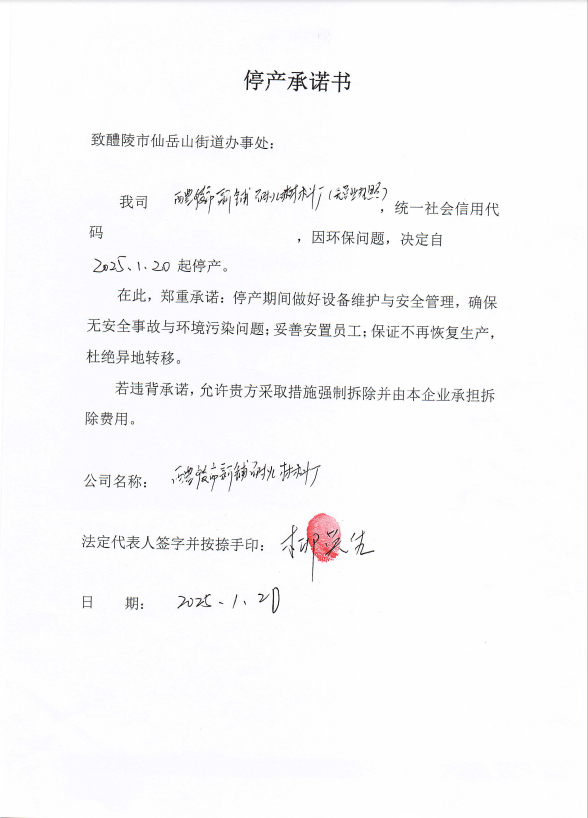 停产承诺书
致醴陵市仙岳山街道办事处：
我司 醴陵市新铺耐火材料厂（无营业执照），统一社会信用代
码 ，因环保问题，决定自
2025.1.20 起停产。
在此，郑重承诺：停产期间做好设备维护与安全管理，确保
无安全事故与环境污染问题；妥善安置员工；保证不再恢复生产，
杜绝异地转移。
若违背承诺，允许贵方采取措施强制拆除并由本企业承担拆
除费用。
公司名称： 醴陵市新铺耐火材料厂
法定代表人签字并按捺手印：
日 期： 2025.1.20